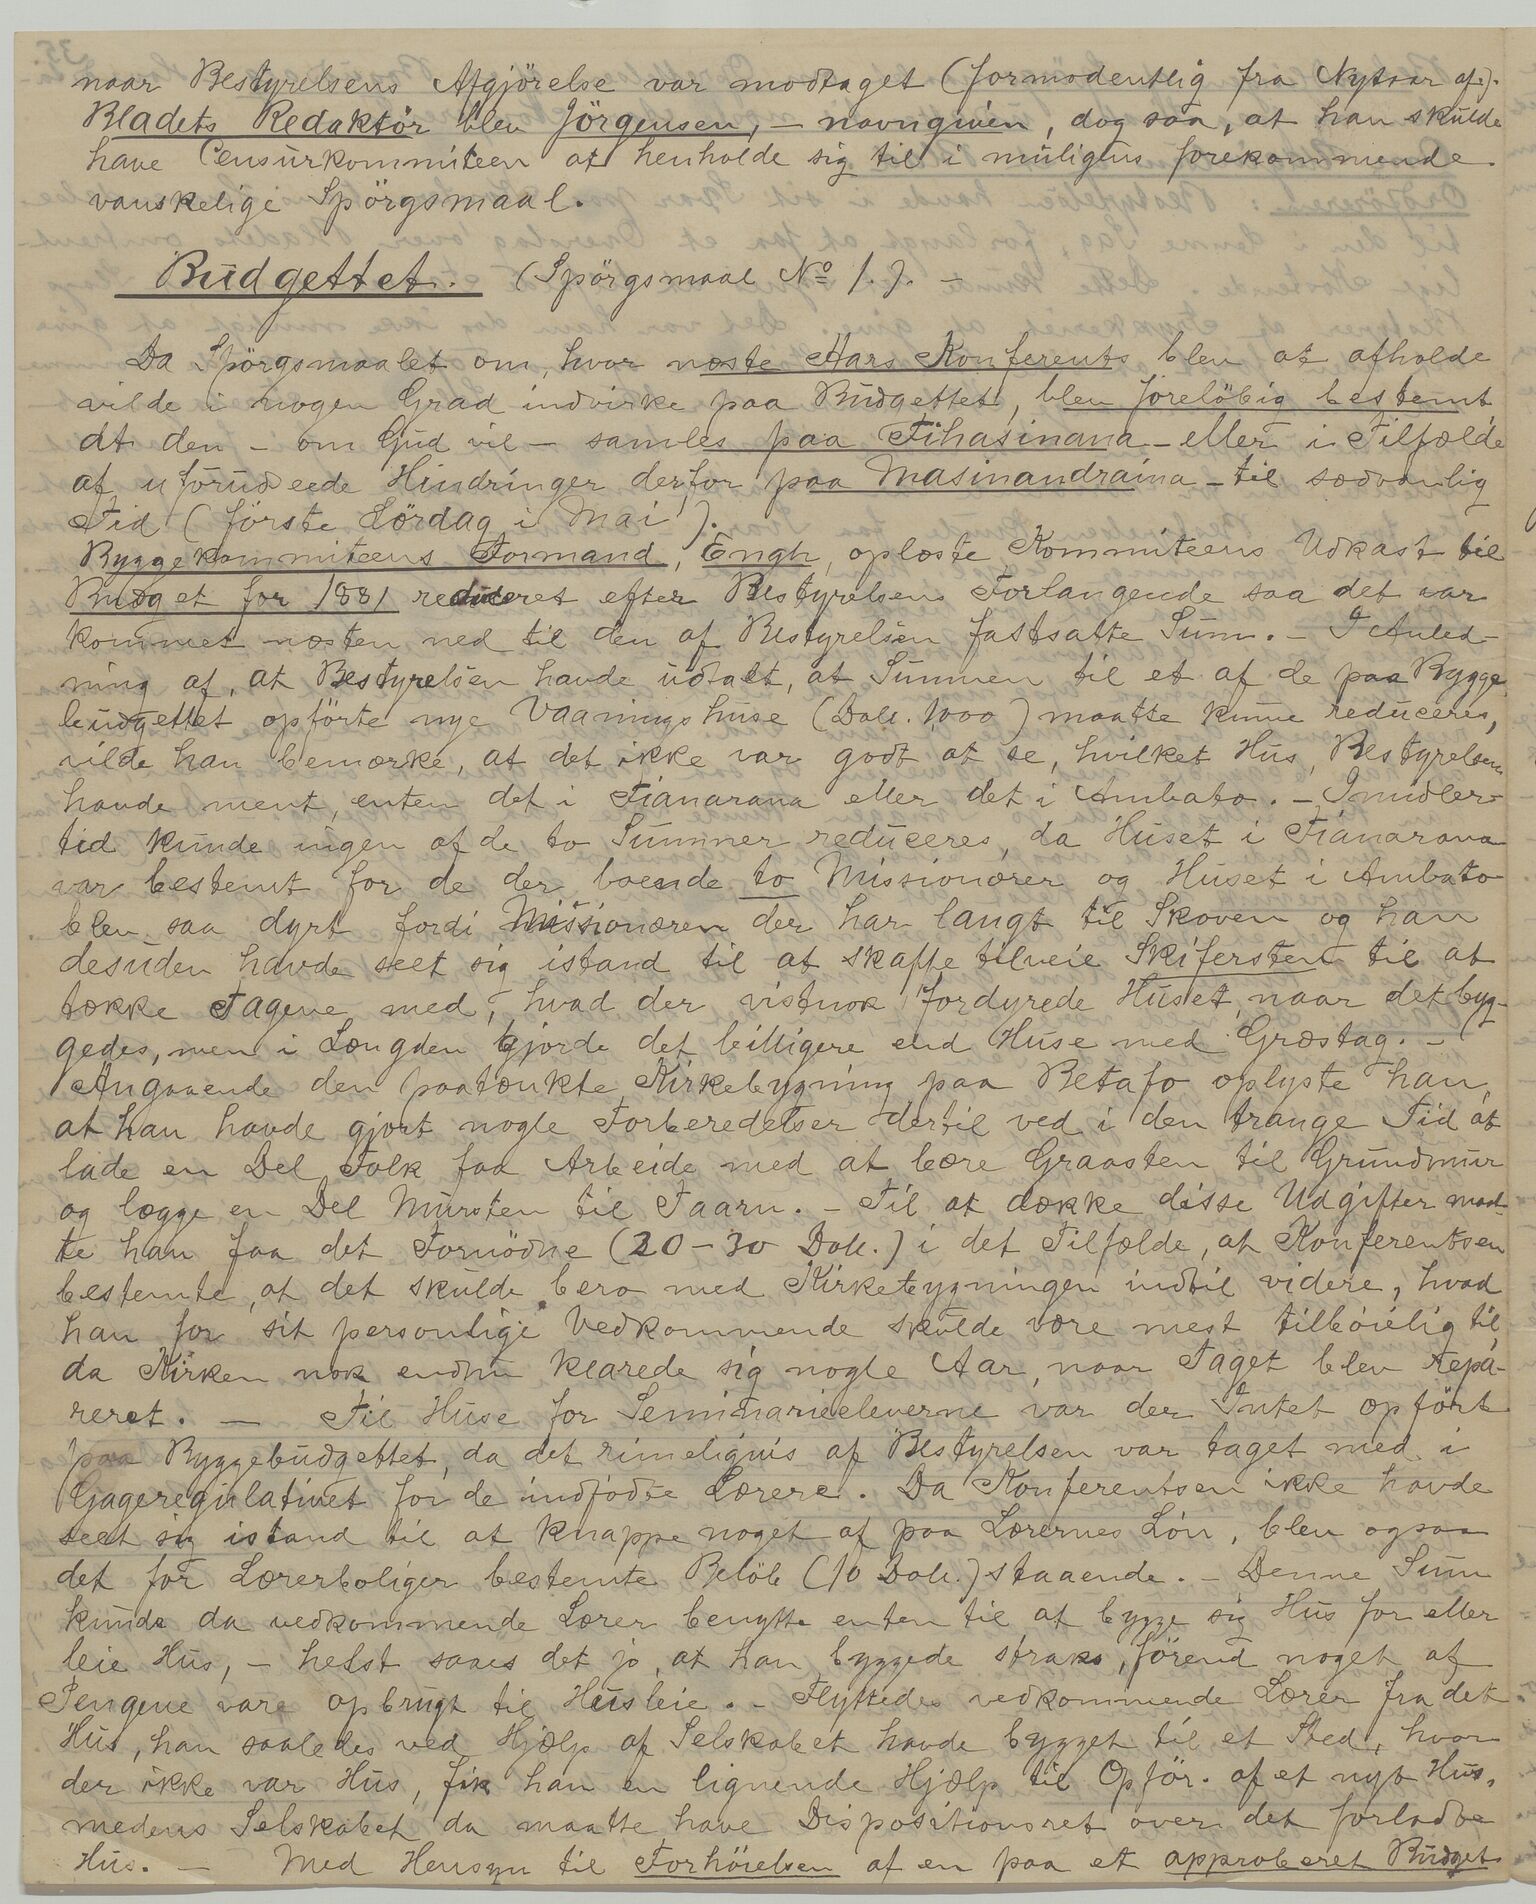 naar Bestyrelsens Afgjörelse var modtaget (formodentlig fra Nytaar af).
Bladets Redaktör blev Jörgensen, – navngiven, dog saa, at han skulde
have Censurkommiteen at henholde sig til i muligens forekommende
vanskelige Spörgsmaal.
Budgettet. (Spörgsmaal No 1.). –
Da Spörgsmaalet om, hvor næste Aars Konferents blev at afholde
vilde i nogen Grad indvirke paa Budgettet, blev foreløbig bestemt,
at den – om Gud vil – samles paa Fihasinana – eller i Tilfælde
af uforudseede Hindringer derfor paa Masinandraina – til sædvanlig
Tid (förste Lördag i Mai).
Byggekommiteens Formand, Engh, oplæste Kommiteens Udkast til
Budget for 1881 reduceret efter Bestyrelsens Forlangende saa det var
kommet næsten ned til den af Bestyrelsen fastsatte Sum. – I Anled-
ning af, at Bestyrelsen havde udtalt, at Summen til et af de paa Bygge
budgettet opförte nye Vaaningshuse (Doll. 1,000) maatte kunne reduceres,
vilde han bemærke, at det ikke var godt at se, hvilket Hus, Bestyrelsen
havde ment, enten det i Fianarana eller det i Ambato. – Imidler-
tid kunde ingen af de to Summer reduceres, da Huset i Fianarana
var bestemt for de der boende to Missionærer og Huset i Ambato
blev saa dyrt fordi Missionæren der har langt til Skoven og han
desuden havde seet sig istand til at skaffe tilveie Skifersten til at
tække Tagene med, hvad der vistnok fordyrede Huset, naar det byg-
gedes, men i Længden gjorde det billigere end Huse med Græstag. –
Angaaende den paatænkte Kirkebygning paa Betafo oplyste han,
at han havde gjort nogle Forberedelser dertil ved i den trange Tid at
lade en Del Folk faa Arbeide med at bære Graasten til Grundmur
og lægge en Del Mursten til Taarn. – Til at dække disse Udgifter maat-
te han faa det Fornödne (20–30 Doll.) i det Tilfælde, at Konferentsen
bestemte, at det skulde bero med Kirkebygningen indtil videre, hvad
han for sit personlige Vedkommende skulde være mest tilböielig til,
da Kirken nok endnu klarede sig nogle Aar, naar Taget blev repa-
reret. – Til Huse for Seminarieeleverne var der Intet opfört
paa Byggebudgettet, da det rimeligvis af Bestyrelsen var taget med i
Gageregulativet for de indfödte Lærere. Da Konferentsen ikke havde
seet sig istand til at knappe noget af paa Lærernes Lön, blev ogsaa
det for Lærerboliger bestemte Belöb (10 Doll.) staaende. – Denne Sum
kunde da vedkommende Lærer benytte enten til at bygge sig Hus for eller
leie Hus, – helst saaes det jo, at han byggede straks, förend noget af
Pengene vare opbrugt til Husleie. – Flyttedes vedkommende Lærer fra det
Hus, han saaledes ved Hjælp af Selskabet havde bygget til et Sted, hvor
der ikke var Hus, fik han en lignende Hjælp til Opför. af et nyt Hus,
medens Selskabet da maatte have Dispositionsret over det forladte
Hus. – Med Hensyn til Forhöielsen af en paa et approberet Budget